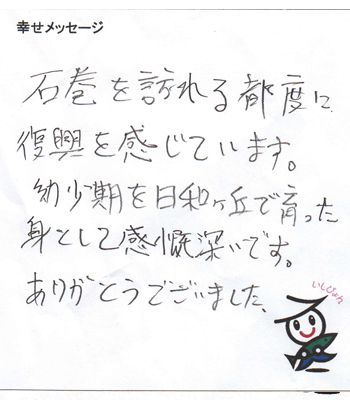 幸せメッセージ
石巻を訪れる都度に
復興を感じています。
幼少期を日和ヶ丘で育った
身として感慨深いです。
ありがとうでございました。
いしぴょん